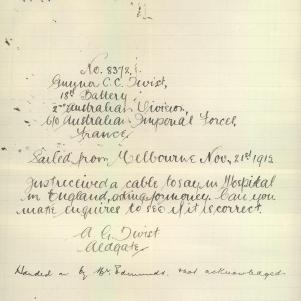 No. 8372,
Gunner C. C. Twist,
18th Battery
2nd Australian Division,
c/o Australian Imperial Forces,
France.
Sailed from Melbourne Nov. 21st 1915
Just received a cable to say in Hospital
in England, asking for money. Can you
make enquires to see if it is correct.
A G Twist
Aldgate
Handed in by Mr Edmunds. not acknowledged